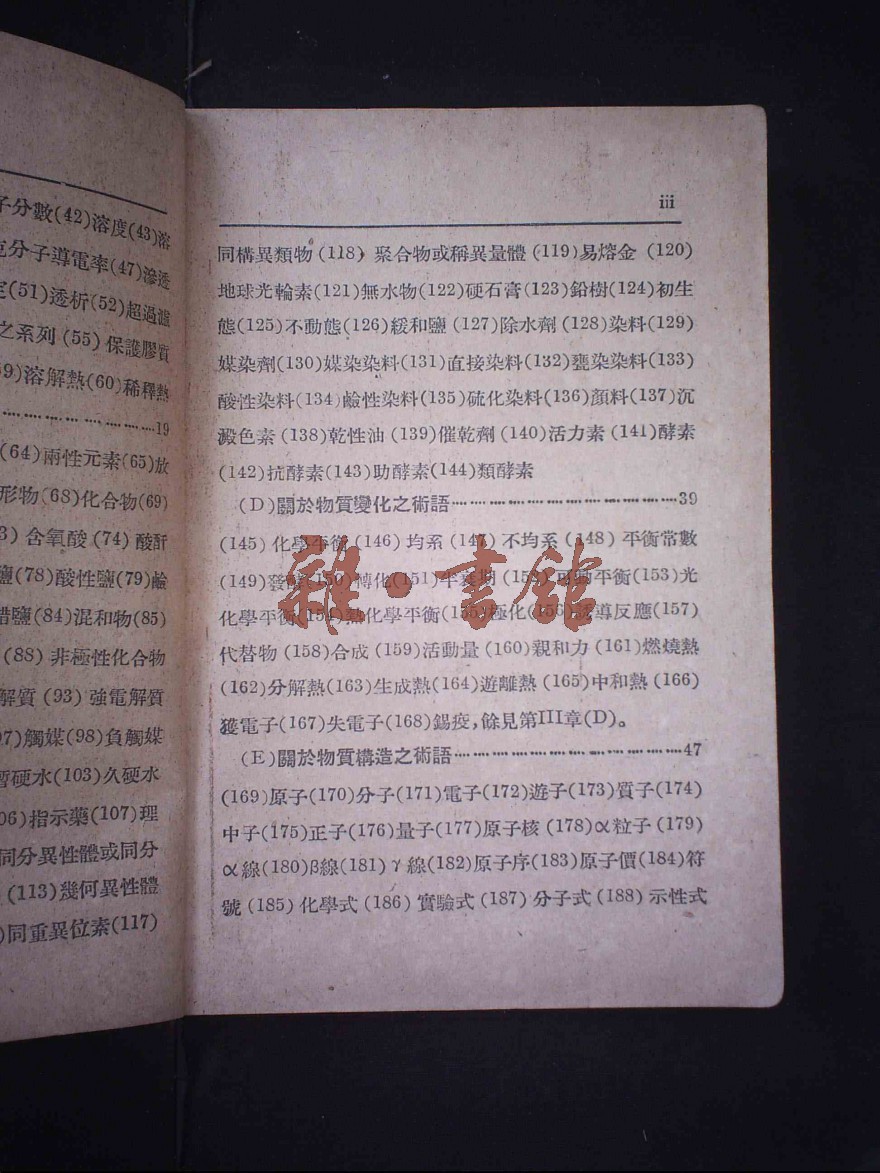 子分數(42)溶度(43)溶
克分子導電率(47)滲透
定(51)透析(52)超過濾
之系列(55)保護膠質
59)溶解熱(60)稀釋熱
……………………19
(64)兩性元素(65)放
形物(68)化合物(69)
3)含氧酸(74)酸酐
鹽(78)酸性鹽(79)鹼
錯鹽(84)混和物(85)
(88)非極性化合物
解質(93)強電解質
97)觸媒(98)負觸媒
暫硬水(103)久硬水
06)指示藥(107)理
同分異性體或同分
(113)幾何異性體
)同重異位素(117)
iii
同構異類物(118)聚合物或稱異量體(119)易熔金(120)
地球光輪素(121)無水物(122)硬石膏(123)鉛樹(124)初生
態(125)不動態(126)緩和鹽(127)除水劑(128)染料(129)
媒染劑(130)媒染染料(131)直接染料(132)甕染染料(133)
酸性染料(134)鹼性染料(135)硫化染料(136)顏料(137)沉
澱色素(138)乾性油(139)催乾劑(140)活力素(141)酵素
(142)抗酵素(143)助酵素(144)類酵素
(D)關於物質變化之術語……………………………39
(145)化學平衡(146)均系(147)不均系(148)平衡常數
(149)發酵(150)轉化(151)半衰期(152)可動平衡(153)光
化學平衡(154)熱化學平衡(155)極化(156)誘導反應(157)
代替物(158)合成(159)活動量(160)親和力(161)燃燒熱
(162)分解熱(163)生成熱(164)遊離熱(165)中和熱(166)
獲電子(167)失電子(168)錫疫,餘見第III章(D)。
(E)關於物質構造之術語……………………………47
(169)原子(170)分子(171)電子(172)遊子(173)質子(174)
中子(175)正子(176)量子(177)原子核(178)α粒子(179)
α線(180)β線(181)γ線(182)原子序(183)原子價(184)符
號(185)化學式(186)實驗式(187)分子式(188)示性式
雜·書館